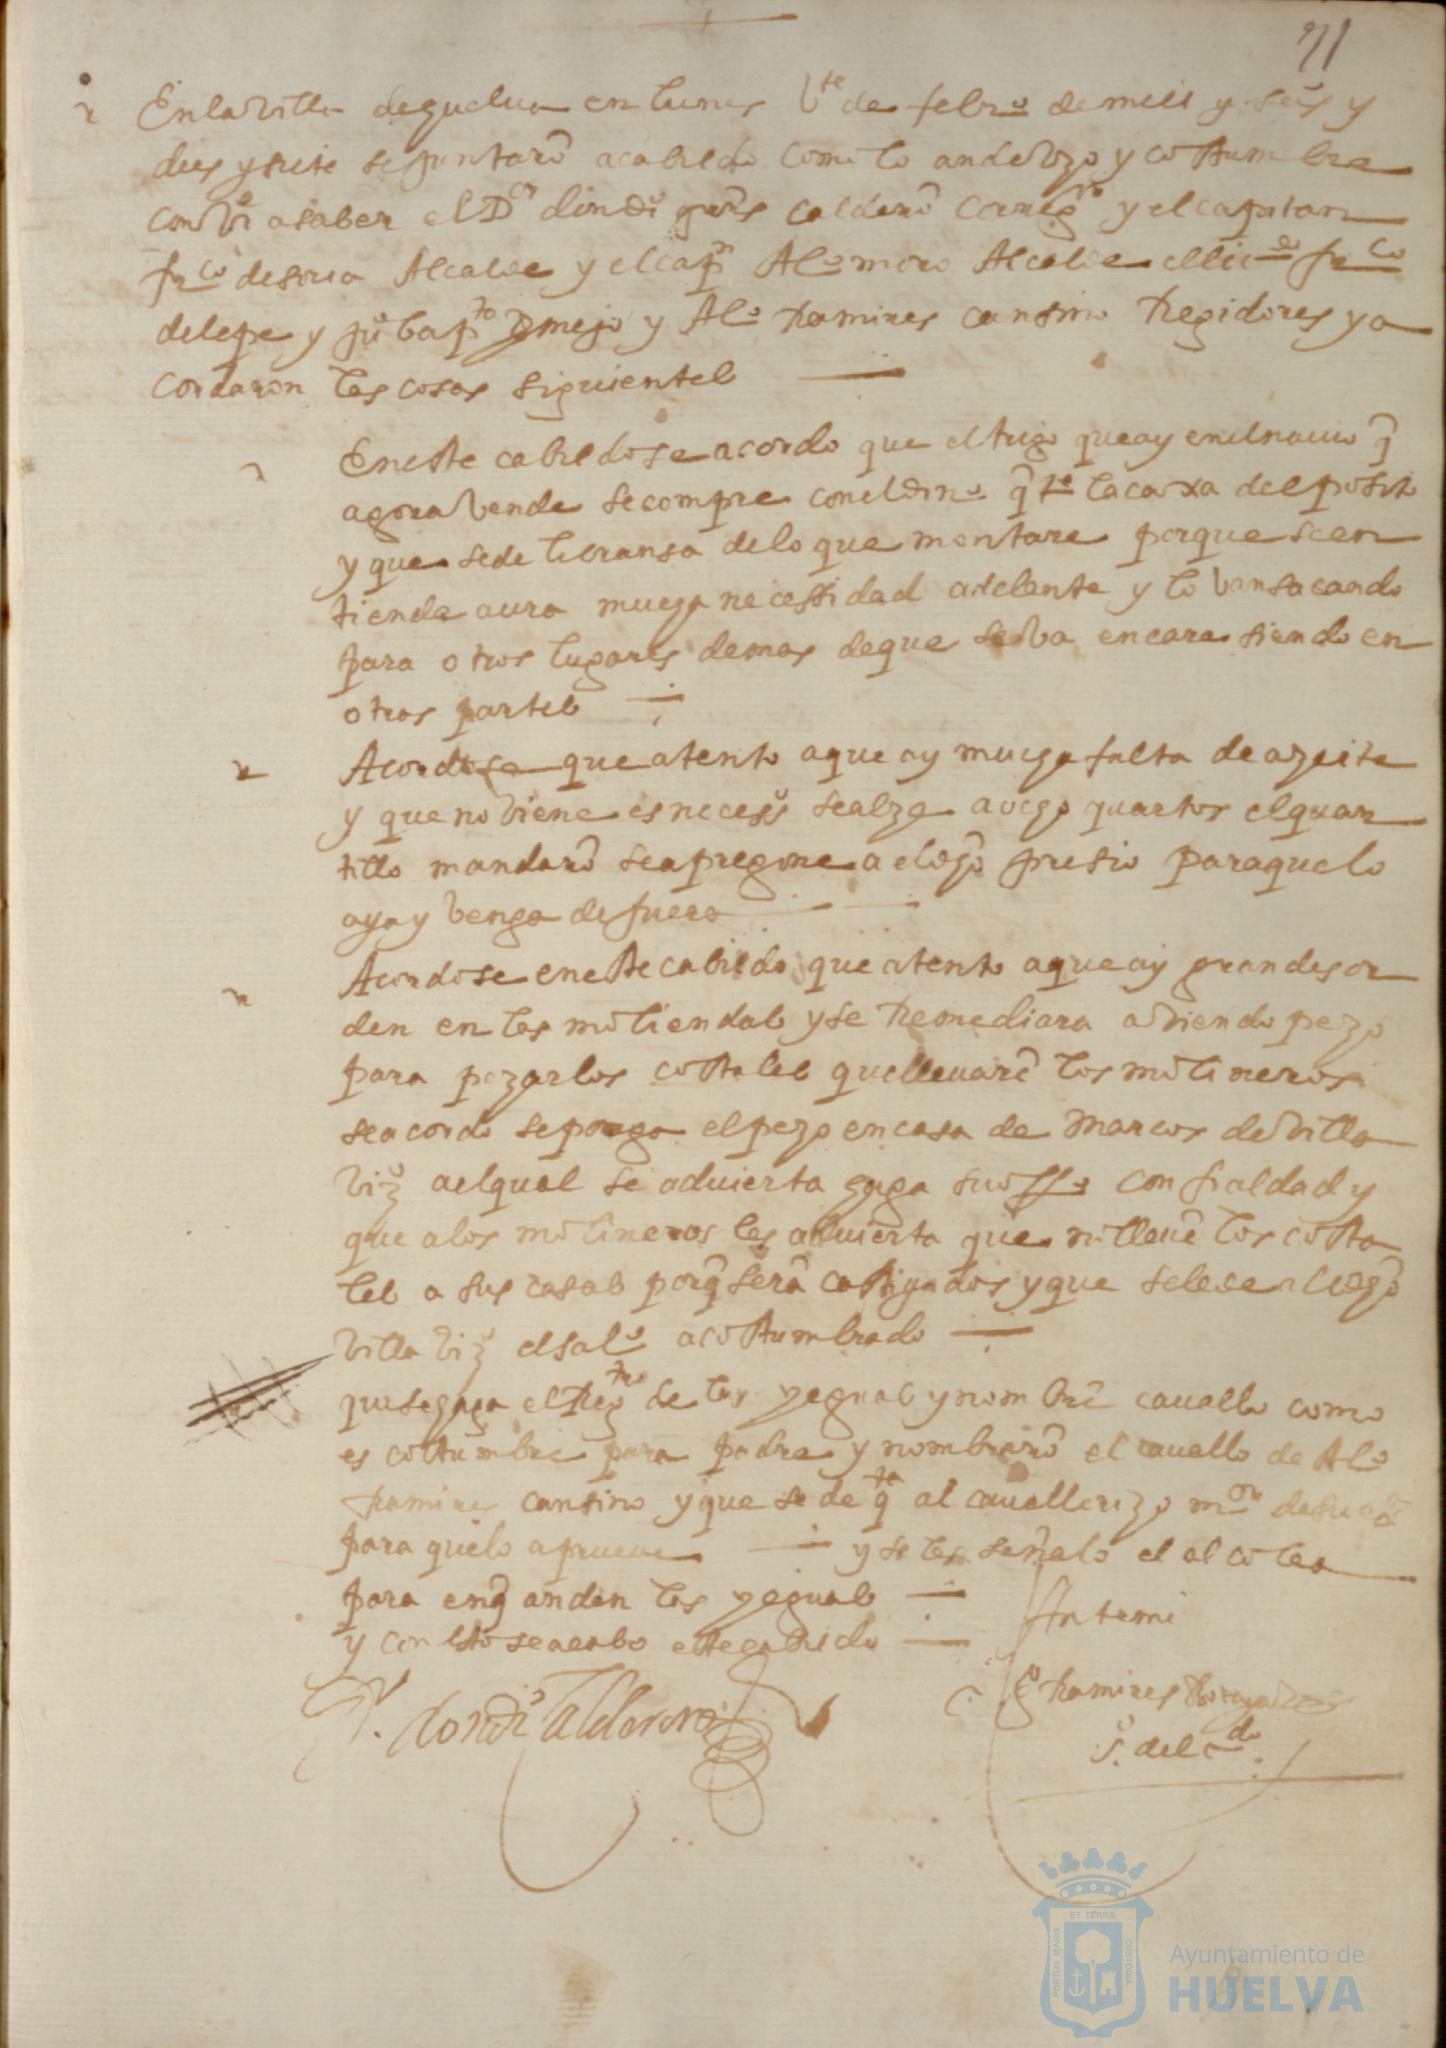 71
En la Villa de guelua en lunes Vte de febro de mill y seiso y
dies y siete se juntarō a cabildo como lo an de Vzo y costumbre
con Vi a saber el Dor don di peres calderō corregor y el capitan
frco de soria Alcalde y el capn Alo moro Alcalde el licdo frco
de lepe y juo bapta bmejo y Alo Ramires cansino Regidores y a
cordaron las cosas siguientes
En este cabildo se acordo que el trigo que ay en el nauio q̄
agora Vende se compre con el dino q̄ tē la caxa del posito
y que se de libransa de lo que montare porque se en
tiende aura muega necessidad adelante y lo Van sacando
para otros lugares demas de que se Va encaresiendo en
otras partes
Acordose que atento a que ay muega falta de azeite
y que no Viene es necesso se alze a ocgo quartos el quar
tillo mandarō se apregone a el dgō presio para que lo
aya y Venga de fuera
Acordose en este cabildo que atento a que ay gran desor
den en las moliendas y se Remediara aviendo pezo
para pezar los costales que lleuarē los molineros
se acordo se ponga el pezo en casa de Marcos de Villa
Vizo a el qual se aduierta gaga su offo con fialdad y
que a los molineros les aduierta que no lleuē los costa
les a sus casas porq̄ serā castigados y que se le de a el dgō
Villa Vizo el salo acostumbrado
que se gaga el Regtro de las yeguas y nombrē cauallo como
es costumbre para padre y nombrarō el cauallo de Alo
Ramires cansino y que se de qta al cauallerizo mor de su exa
para que lo aprueue y se les señalo el alcolea
para en q̄ anden las yeguas
y con esto se acabo este cabildo
Ante mi
Dr. don di Calderon
Go Ramires
so. del cdo.
PORTUS MARIS ET TERRÆ CUSTODIA
Ayuntamiento de
HUELVA